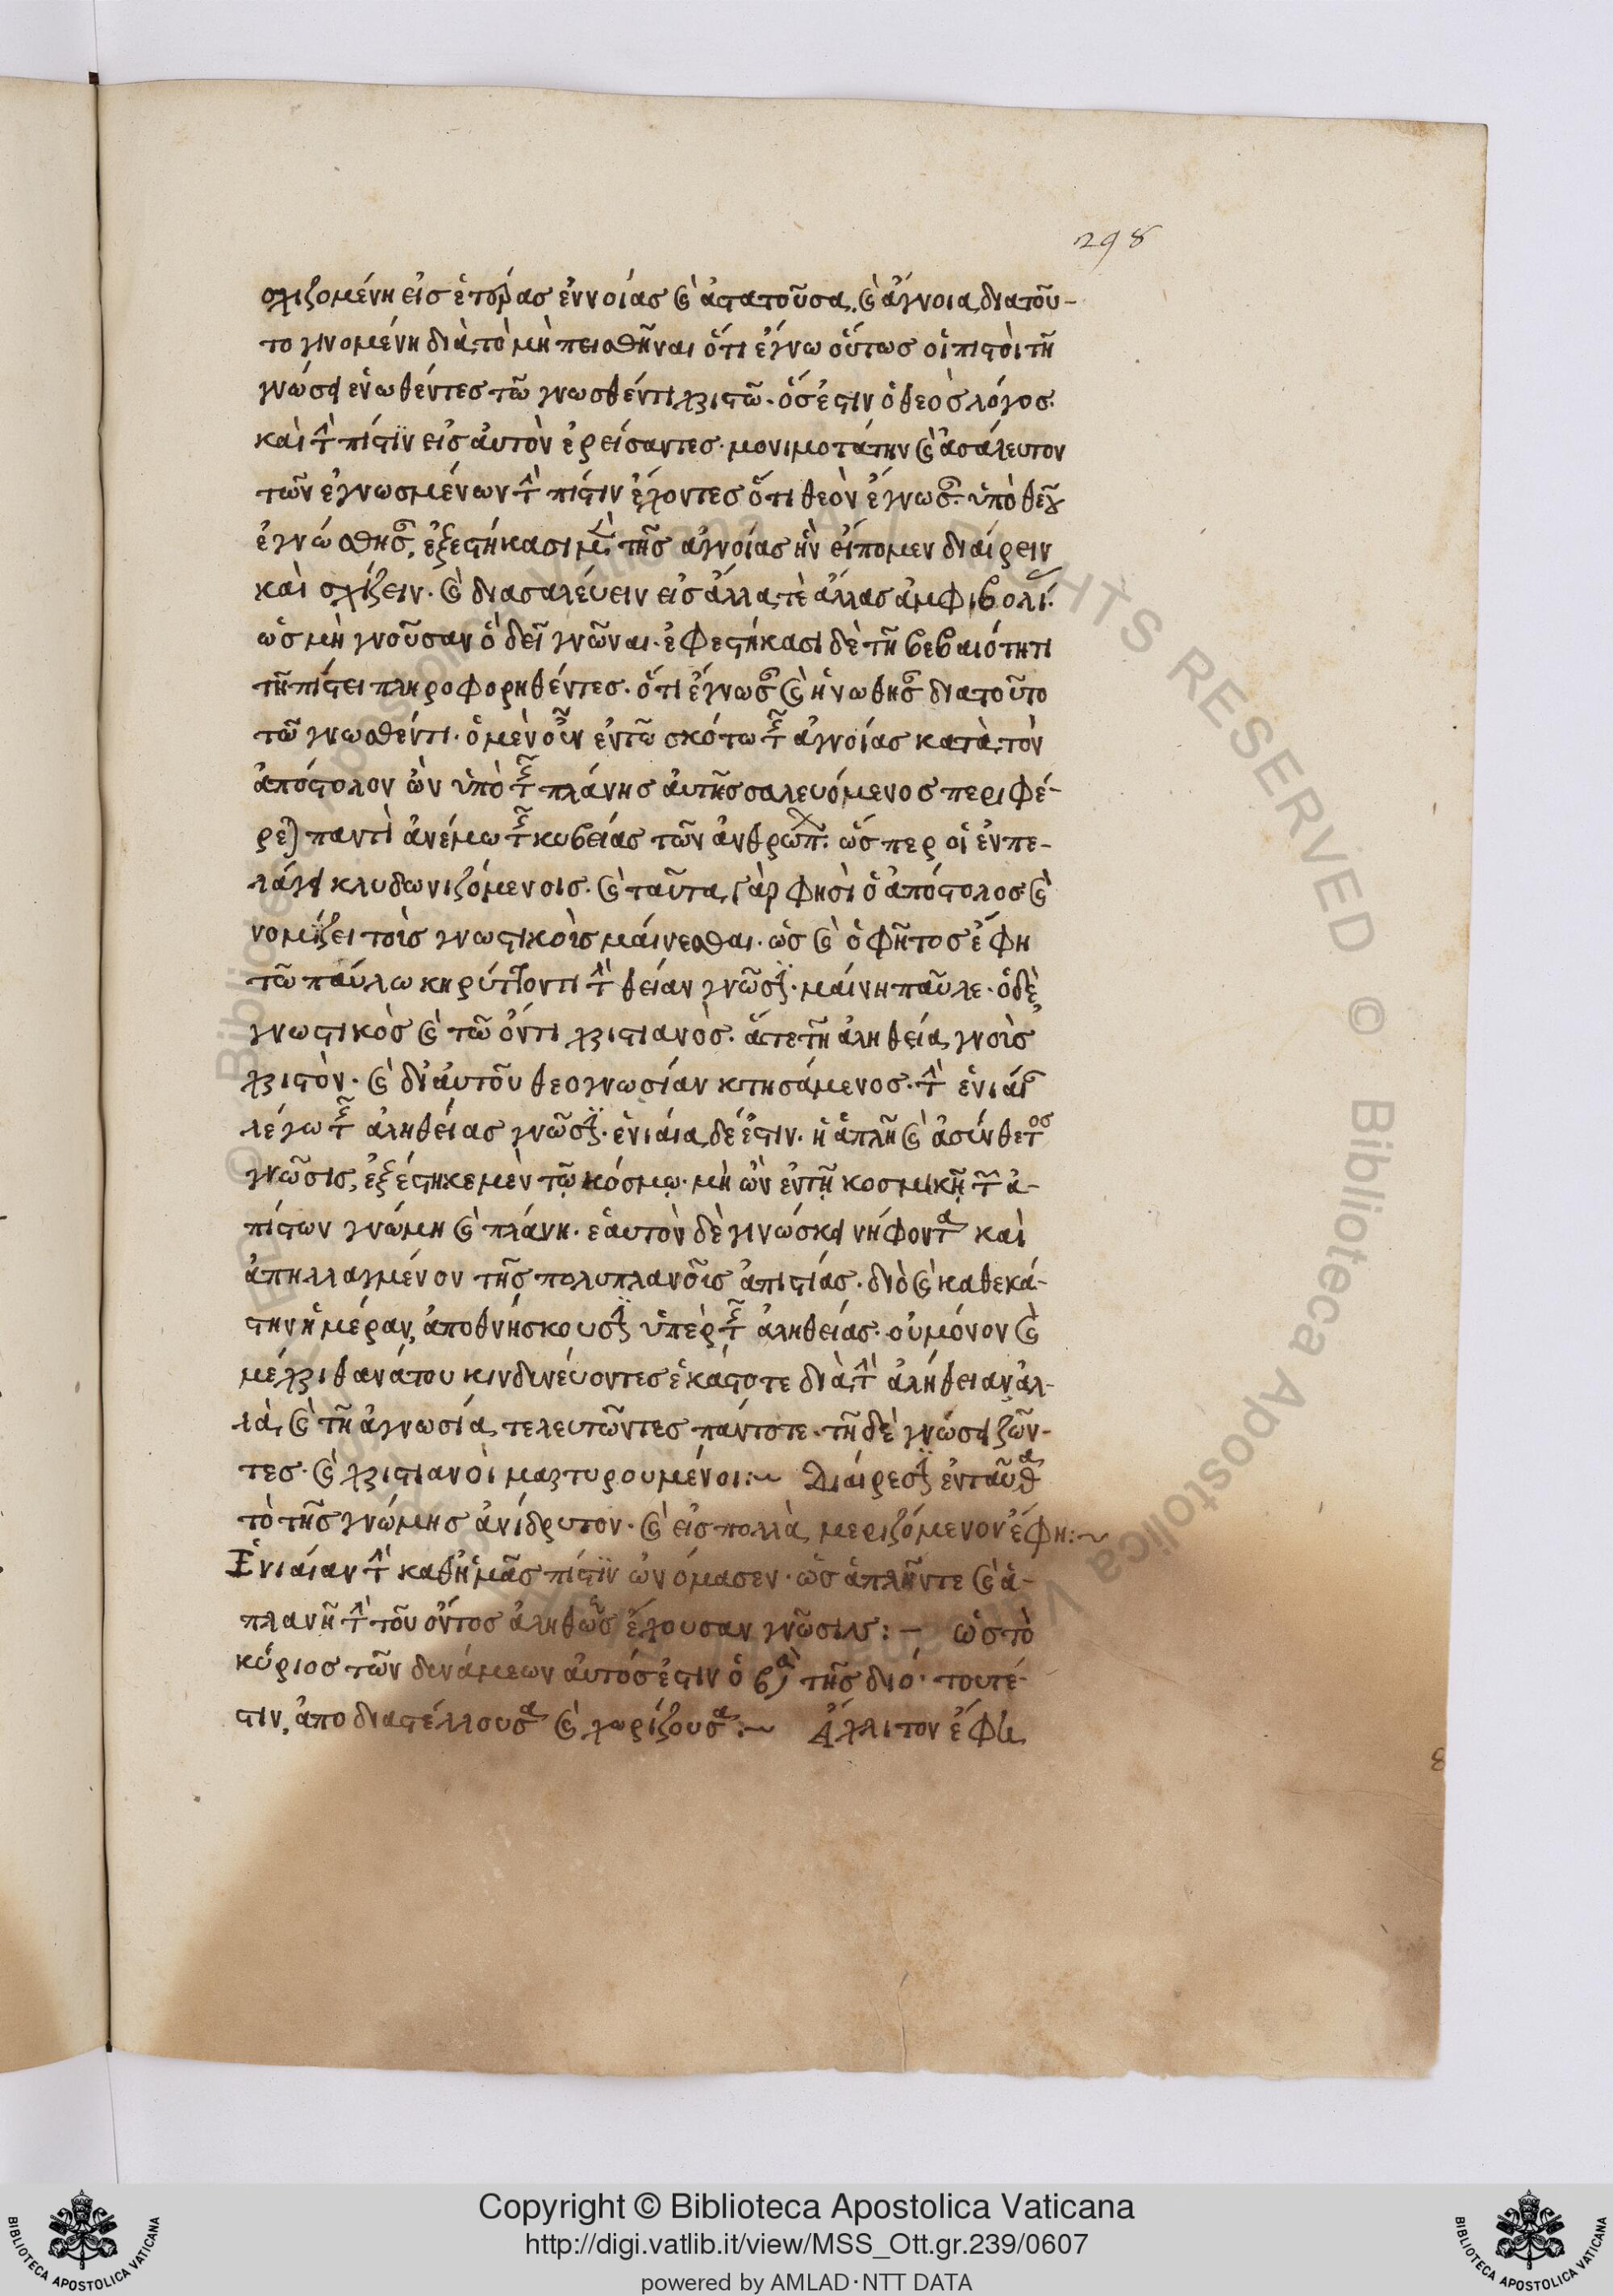 298
σχιζομένη εἰς ἑτέρας ἐννοίας καὶ ἀστατοῦσα. καὶ ἄγνοια διατοῦ-
το γινομένη διὰ τὸ μὴ πεισθῆναι ὅτι ἔγνω οὕτως οἱ πιστοὶ τῆ
γνώσει ἑνωθέντες τῶ γνωσθέντι χριστῶ. ὅς ἐστιν ὁ θεὸς λόγος.
καὶ τὴν πίστιν εἰς αὐτὸν ἐρείσαντες. μονιμοτάτην καὶ ἀσάλευτον
τῶν ἐγνωσμένων τὴν πίστιν ἔχοντες ὅτι θεὸν ἔγνωσαν. ὑπὸ θεοῦ
ἐγνώσθησαν, ἐξεστήκασι μὲν τῆς ἀγνοίας ἣν εἴπομεν διαίρειν
καὶ σχίζειν. καὶ διασαλεύειν εἰς ἄλλα τὲ ἄλλας ἀμφιβολί.
ὡς μὴ γνοῦσαν ὃ δεῖ γνῶναι. ἐφεστήκασι δὲ τῆ βεβαιότητι
τῆ πίστει πληροφορηθέντες. ὅτι ἔγνωσαν καὶ ἡνώθησαν διατοῦτο
τῶ γνωσθέντι. ὁ μὲν οὖν ἐν τῶ σκότω τῆς ἀγνοίας κατὰ τὸν
ἀπόστολον ὢν ὑπὸ τῆς πλάνης αὐτῆς σαλευόμενος περιφέ-
ρεται παντὶ ἀνέμω τῆς κυβείας τῶν ἀνθρώπων. ὥσπερ οἱ ἐν πε-
λάγει κλυδωνιζόμενοις. καὶ ταῦτα γάρ φησὶ ὁ ἀπόστολος καὶ
νομίζει τοῖς γνωστικοῖς μαίνεσθαι. ὡς καὶ ὁ φῆστος ἔφη
τῶ παύλω κηρύττοντι τὴν θείαν γνῶσιν. μαίνη παῦλε. ὁ δὲ
γνωστικὸς καὶ τῶ ὄντι χριστιανὸς. ἅτε τῆ ἀληθεία γνοὺς
χριστὸν. καὶ δι' αὐτοῦ θεογνωσίαν κτησάμενος. τὴν ἑνιαίαν
λέγω τῆς ἀληθείας γνῶσιν. ἑνιαία δέ ἐστιν. ἡ ἁπλῆ καὶ ἀσύνθετος
γνῶσις, ἐξέστηκε μὲν τῷ κόσμῳ. μὴ ὢν ἐν τῇ κοσμικῇ τῶν ἀ-
πίστων γνώμη καὶ πλάνη. ἑαυτὸν δὲ γινώσκει νήφοντα καὶ
ἀπηλλαγμένον τῆς πολυπλανοῦς ἀπιστίας. διὸ καὶ καθεκά-
στην ἡμέραν, ἀποθνήσκουσιν ὑπὲρ τῆς ἀληθείας. οὐ μόνον καὶ
μέχρι θανάτου κινδυνεύοντες ἑκάστοτε διὰ τὴν ἀλήθειαν ἀλ-
λὰ καὶ τῆ ἀγνωσία τελευτῶντες πάντοτε. τῆ δὲ γνώσει ζῶν-
τες. καὶ χριστιανοὶ μαρτυρουμένοι:~ Διαίρεσιν ἐνταῦθα
τὸ τῆς γνώμης ἀνίδρυτον. καὶ εἰς πολλὰ μεριζόμενον ἔφη:~
Ἑνιαίαν τὴν καθ' ἡμᾶς πίστιν ὠνόμασεν. ὡς ἁπλῆν τε καὶ ἀ-
πλανῆ τὴν τοῦ ὄντος ἀληθῶς ἔχουσαν γνῶσιν:- ὡς τὸ
κύριος τῶν δυνάμεων αὐτός ἐστιν ὁ β τῆς διό. τουτέ-
στιν, ἀποδιαστέλλουσα καὶ χωρίζουσα:~ Ἄχλιτον ἔφη